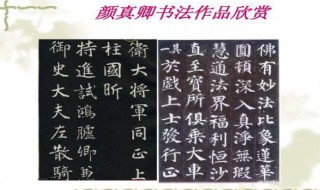 颜真卿书法作品欣赏
佛有妙法比象蓮華
圓頓深入真淨無瑕
慧通法界福利恒沙
直至寶所俱乘大車
其一於戲上士發行正
衛大將軍同正上
柱國昕
特進試鴻臚卿兼
御史大夫左散騎